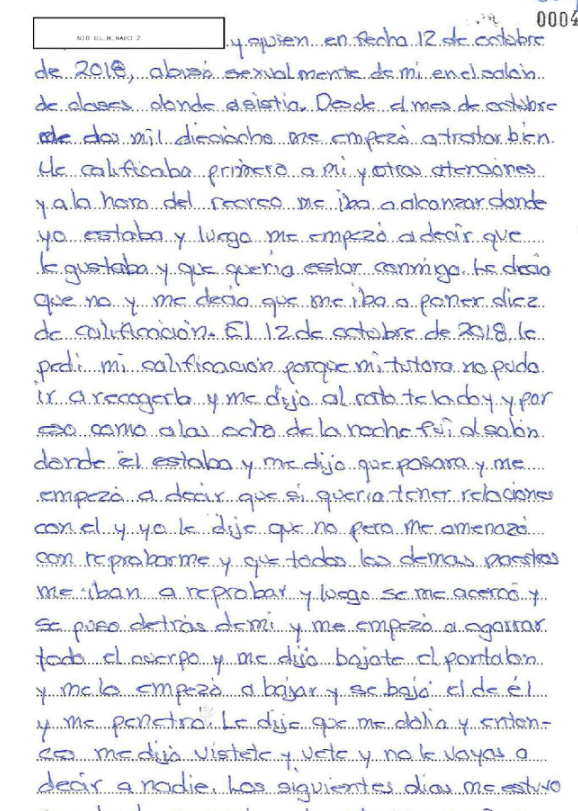 0004
y quien en fecha 12 de octubre
de 2018, abusó sexualmente de mi en el salón
de clases donde asistia. Desde el mes de octubre
de dos mil dieciocho me empezó a tratar bien.
Me calificaba primero a mi y otras atenciones
y a la hora del recreo me iba a alcanzar donde
yo estaba y luego me empezó a decir que
le gustaba y que queria estar conmigo. Le decia
que no y me decia que me iba a poner diez
de calificación. El 12 de octubre de 2018 le
pedi mi calificación porque mi tutora no pudo
ir a recogerla y me dijo al rato te la doy y por
eso como a las ocho de la noche fui al salón
donde él estaba y me dijo que pasara y me
empezó a decir que si queria tener relaciones
con el y yo le dije que no pero me amenazó
con reprobarme y que todos los demas maestros
me iban a reprobar y luego se me acercó y
se puso detrás de mi y me empezó a agarrar
todo el cuerpo y me dijo bajate el pantalon
y me lo empezó a bajar y se bajó el de él
y me penetró. Le dije que me dolia y enton-
ces me dijo vistete y vete y no le vayas a
decir a nadie. Los siguientes dias me estuvo